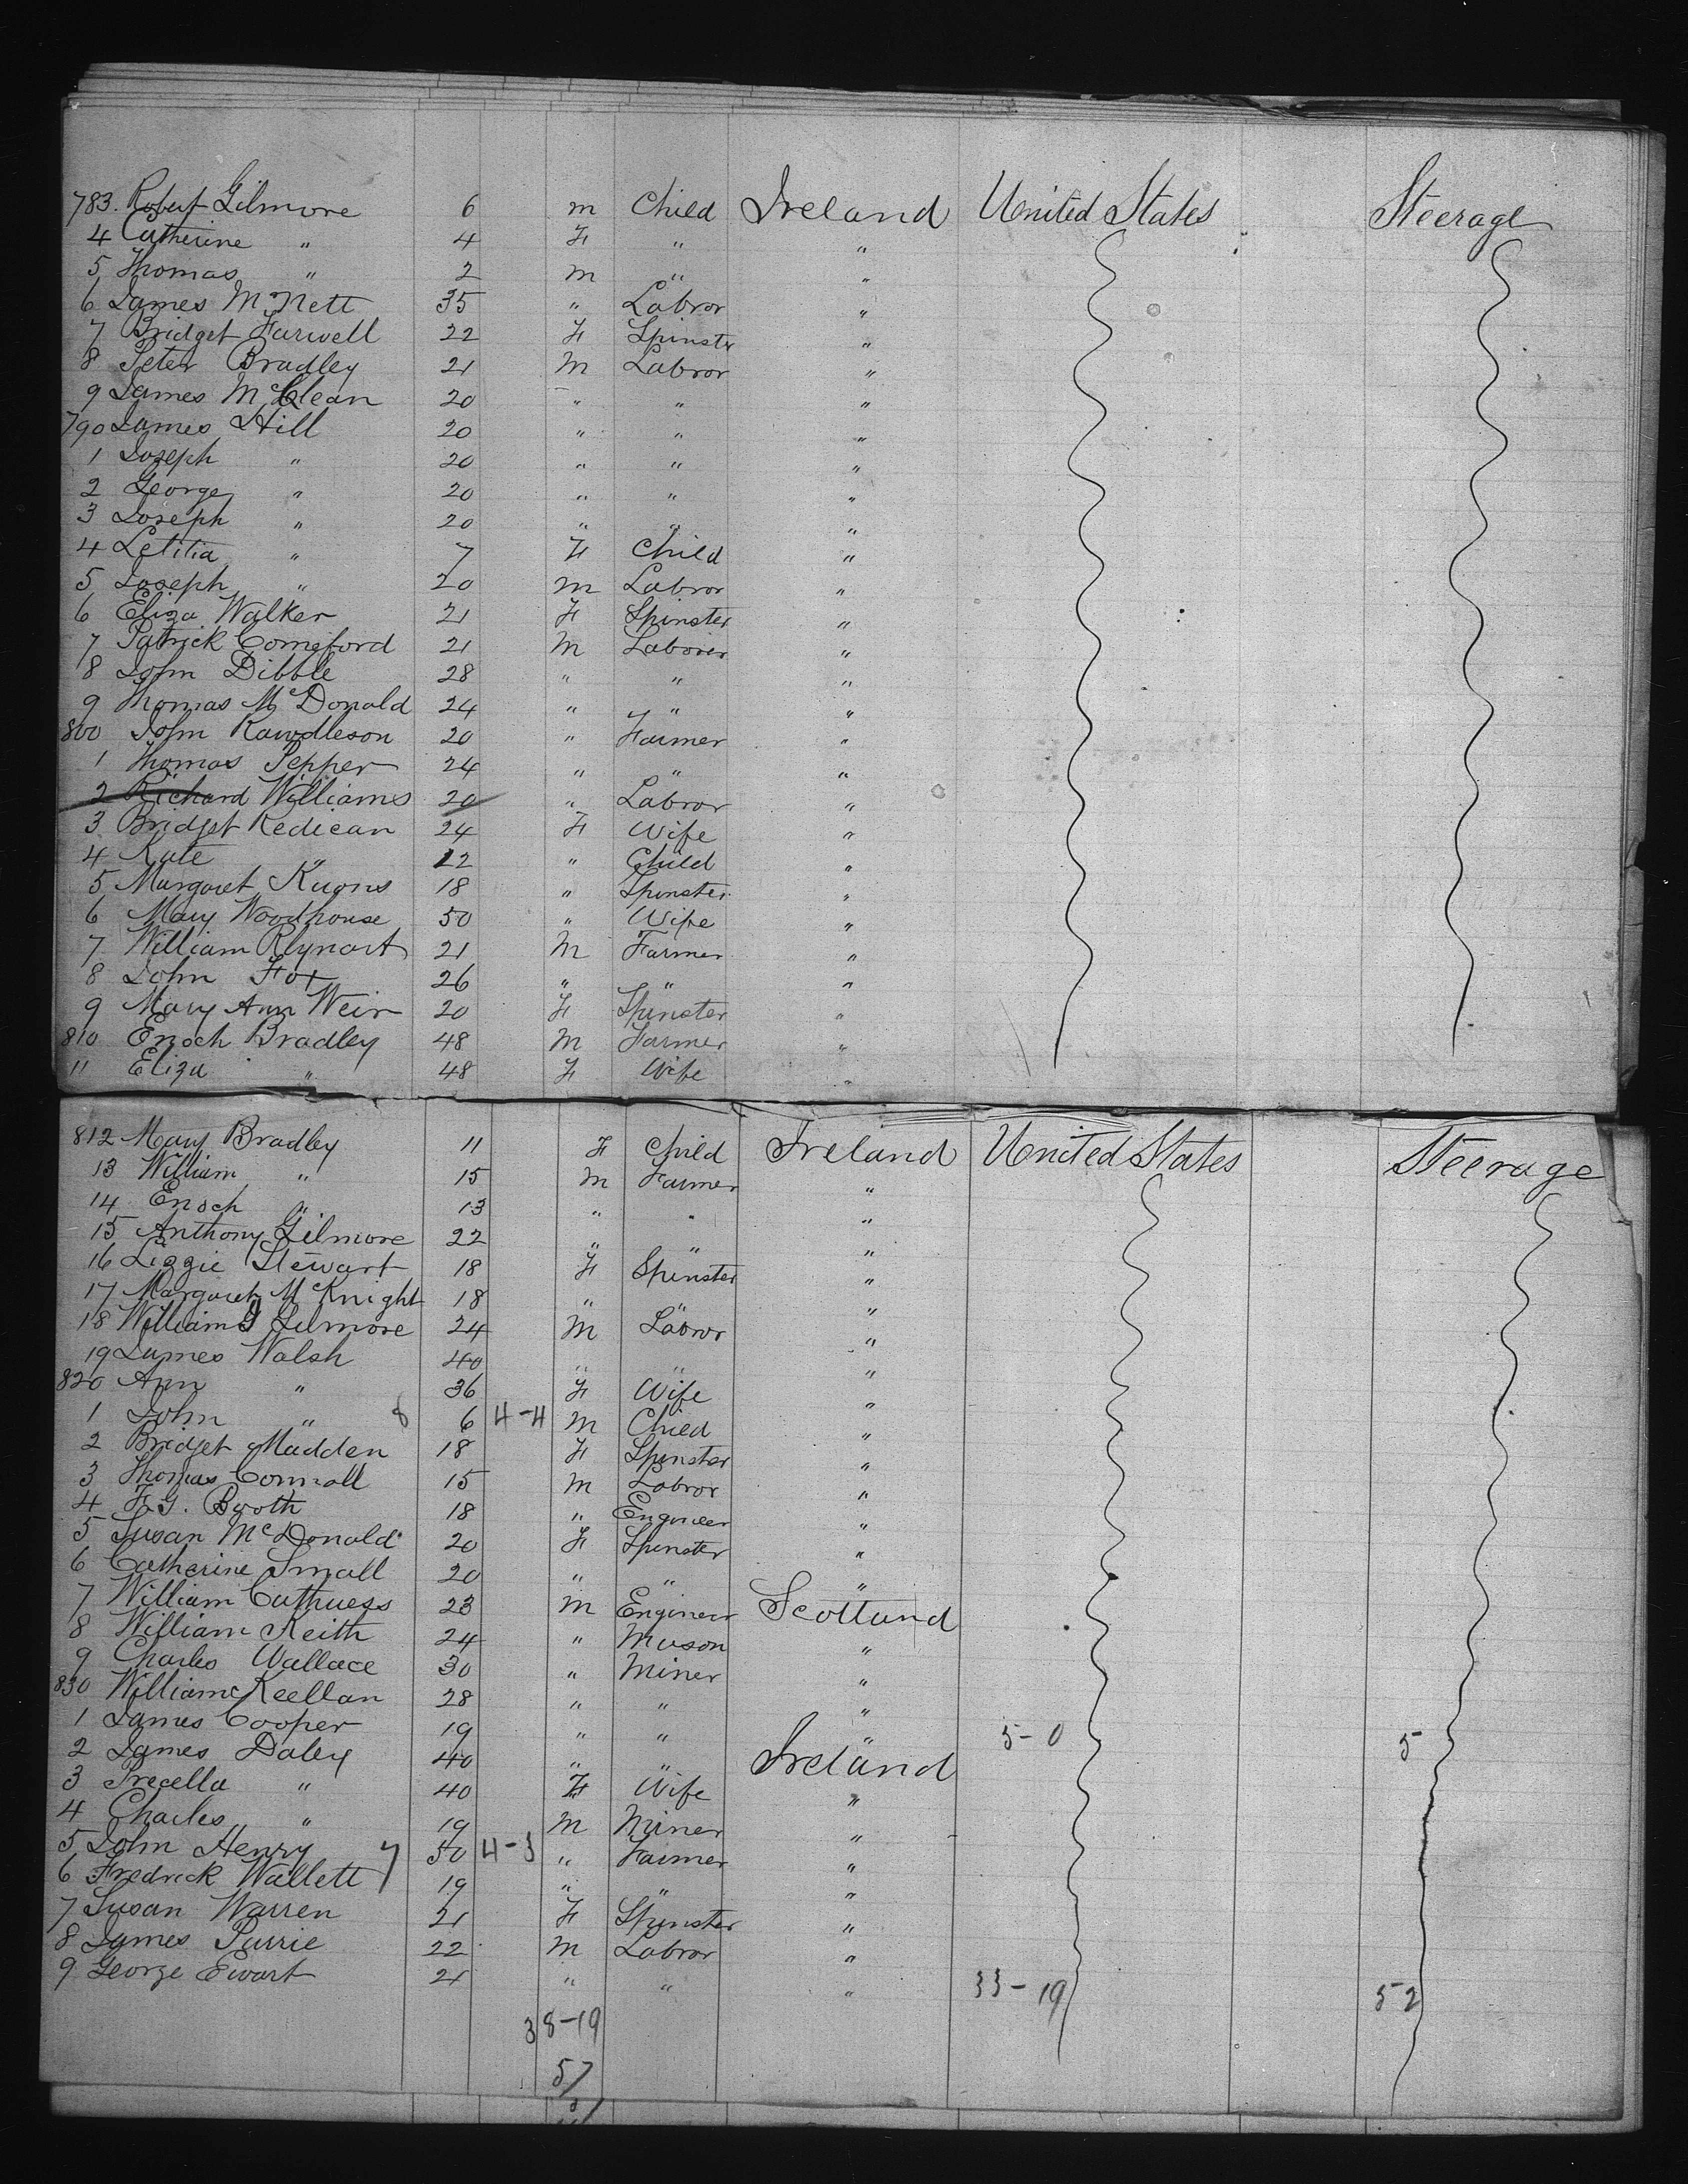 783. Robert Gilmore 6 m Child Ireland United States Steerage
4 Catherine " 4 F " "
5 Thomas " 2 m " "
6 James McNett 35 " Labror "
7 Bridget Farwell 22 F Spinster "
8 Peter Bradley 21 M Labror "
9 James McClean 20 " " "
790 James Hill 20 " " "
1 Joseph " 20 " " "
2 George " 20 " " "
3 Joseph " 20 " " "
4 Letitia " 7 F Child "
5 Joseph " 20 m Labror "
6 Eliza Walker 21 F Spinster "
7 Patrick Comeford 21 M Laborer "
8 John Dibble 28 " " "
9 Thomas McDonald 24 " " "
800 John Rawdleson 20 " Farmer "
1 Thomas Pepper 24 " " "
2 Richard Williams 20 " Labror "
3 Bridget Redican 24 F Wife "
4 Kate " 12 " Child "
5 Margaret 18 " Spinster "
6 Mary Woodhouse 50 " Wife "
7 William 21 M Farmer "
8 John Fox 26 " " "
9 Mary Ann Weir 20 F Spinster "
810 Enoch Bradley 48 M Farmer "
11 Eliza " 48 F Wife "
812 Mary Bradley 11 F Child Ireland United States Steerage
13 William " 15 M Farmer "
14 Enoch " 13 " " "
15 Anthony Gilmore 22 " " "
16 Lizzie Stewart 18 F Spinster "
17 Margaret McKnight 18 " " "
18 William G Gilmore 24 M Labror "
19 James Walsh 40 " " "
820 Ann " 36 F Wife "
1 John " 8 6 4-4 M Child "
2 Bridget Madden 18 F Spinster "
3 Thomas Connall 15 M Labror "
4 F.G. Booth 18 " Engineer "
5 Susan McDonald 20 F Spinster "
6 Catherine Small 20 " " "
7 William 23 M Engineer Scotland
8 William Keith 24 " Mason "
9 Charles Wallace 30 " Miner "
830 William McKeellan 28 " " "
1 James Cooper 19 " " " 5-0 5
2 James Daley 40 " " Ireland
3 Precella " 40 F Wife "
4 Charles " 19 M Miner "
5 John Henry 7 50 4-3 " Farmer "
6 Fredrick Wallett 19 " " "
7 Susan Warren 21 F Spinster "
8 James Purrie 22 M Labror "
9 George Ewart 21 " " " 33-19 52
38-19
57